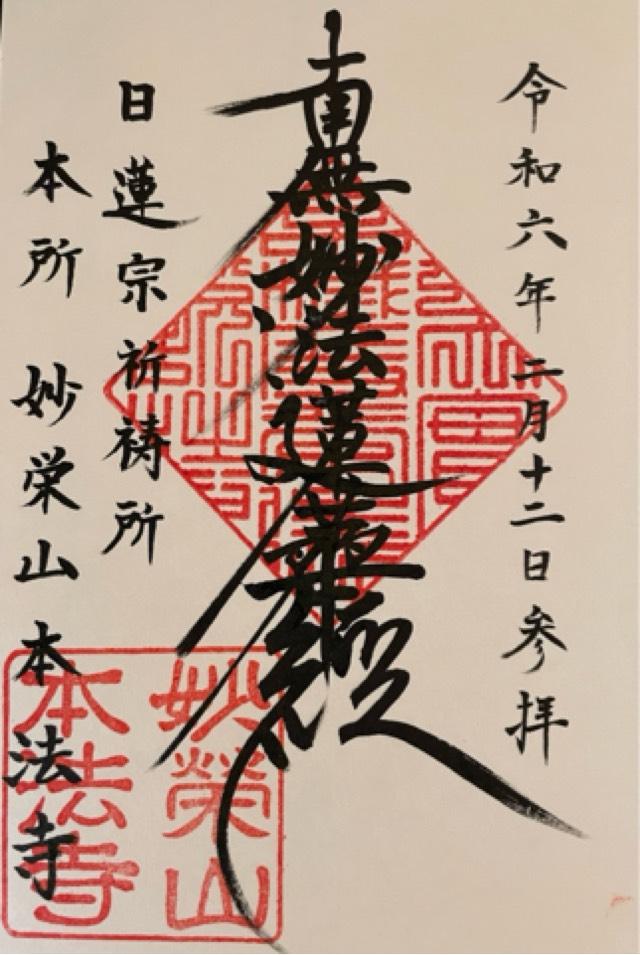 令和六年二月十二日参拝
南無妙法蓮華経
日蓮宗祈祷所
本所 妙栄山本法寺
妙榮山
本法寺